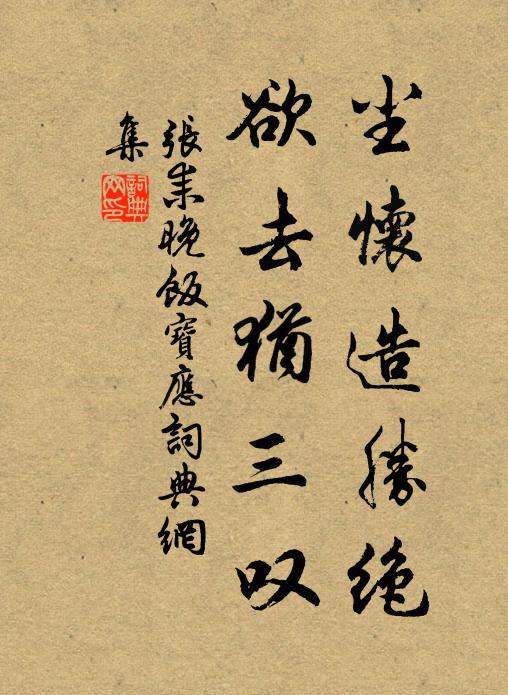 坐懷造勝絶
欲去猶三叹
張耒晚飯寶應詞典網
集
詞典
网印